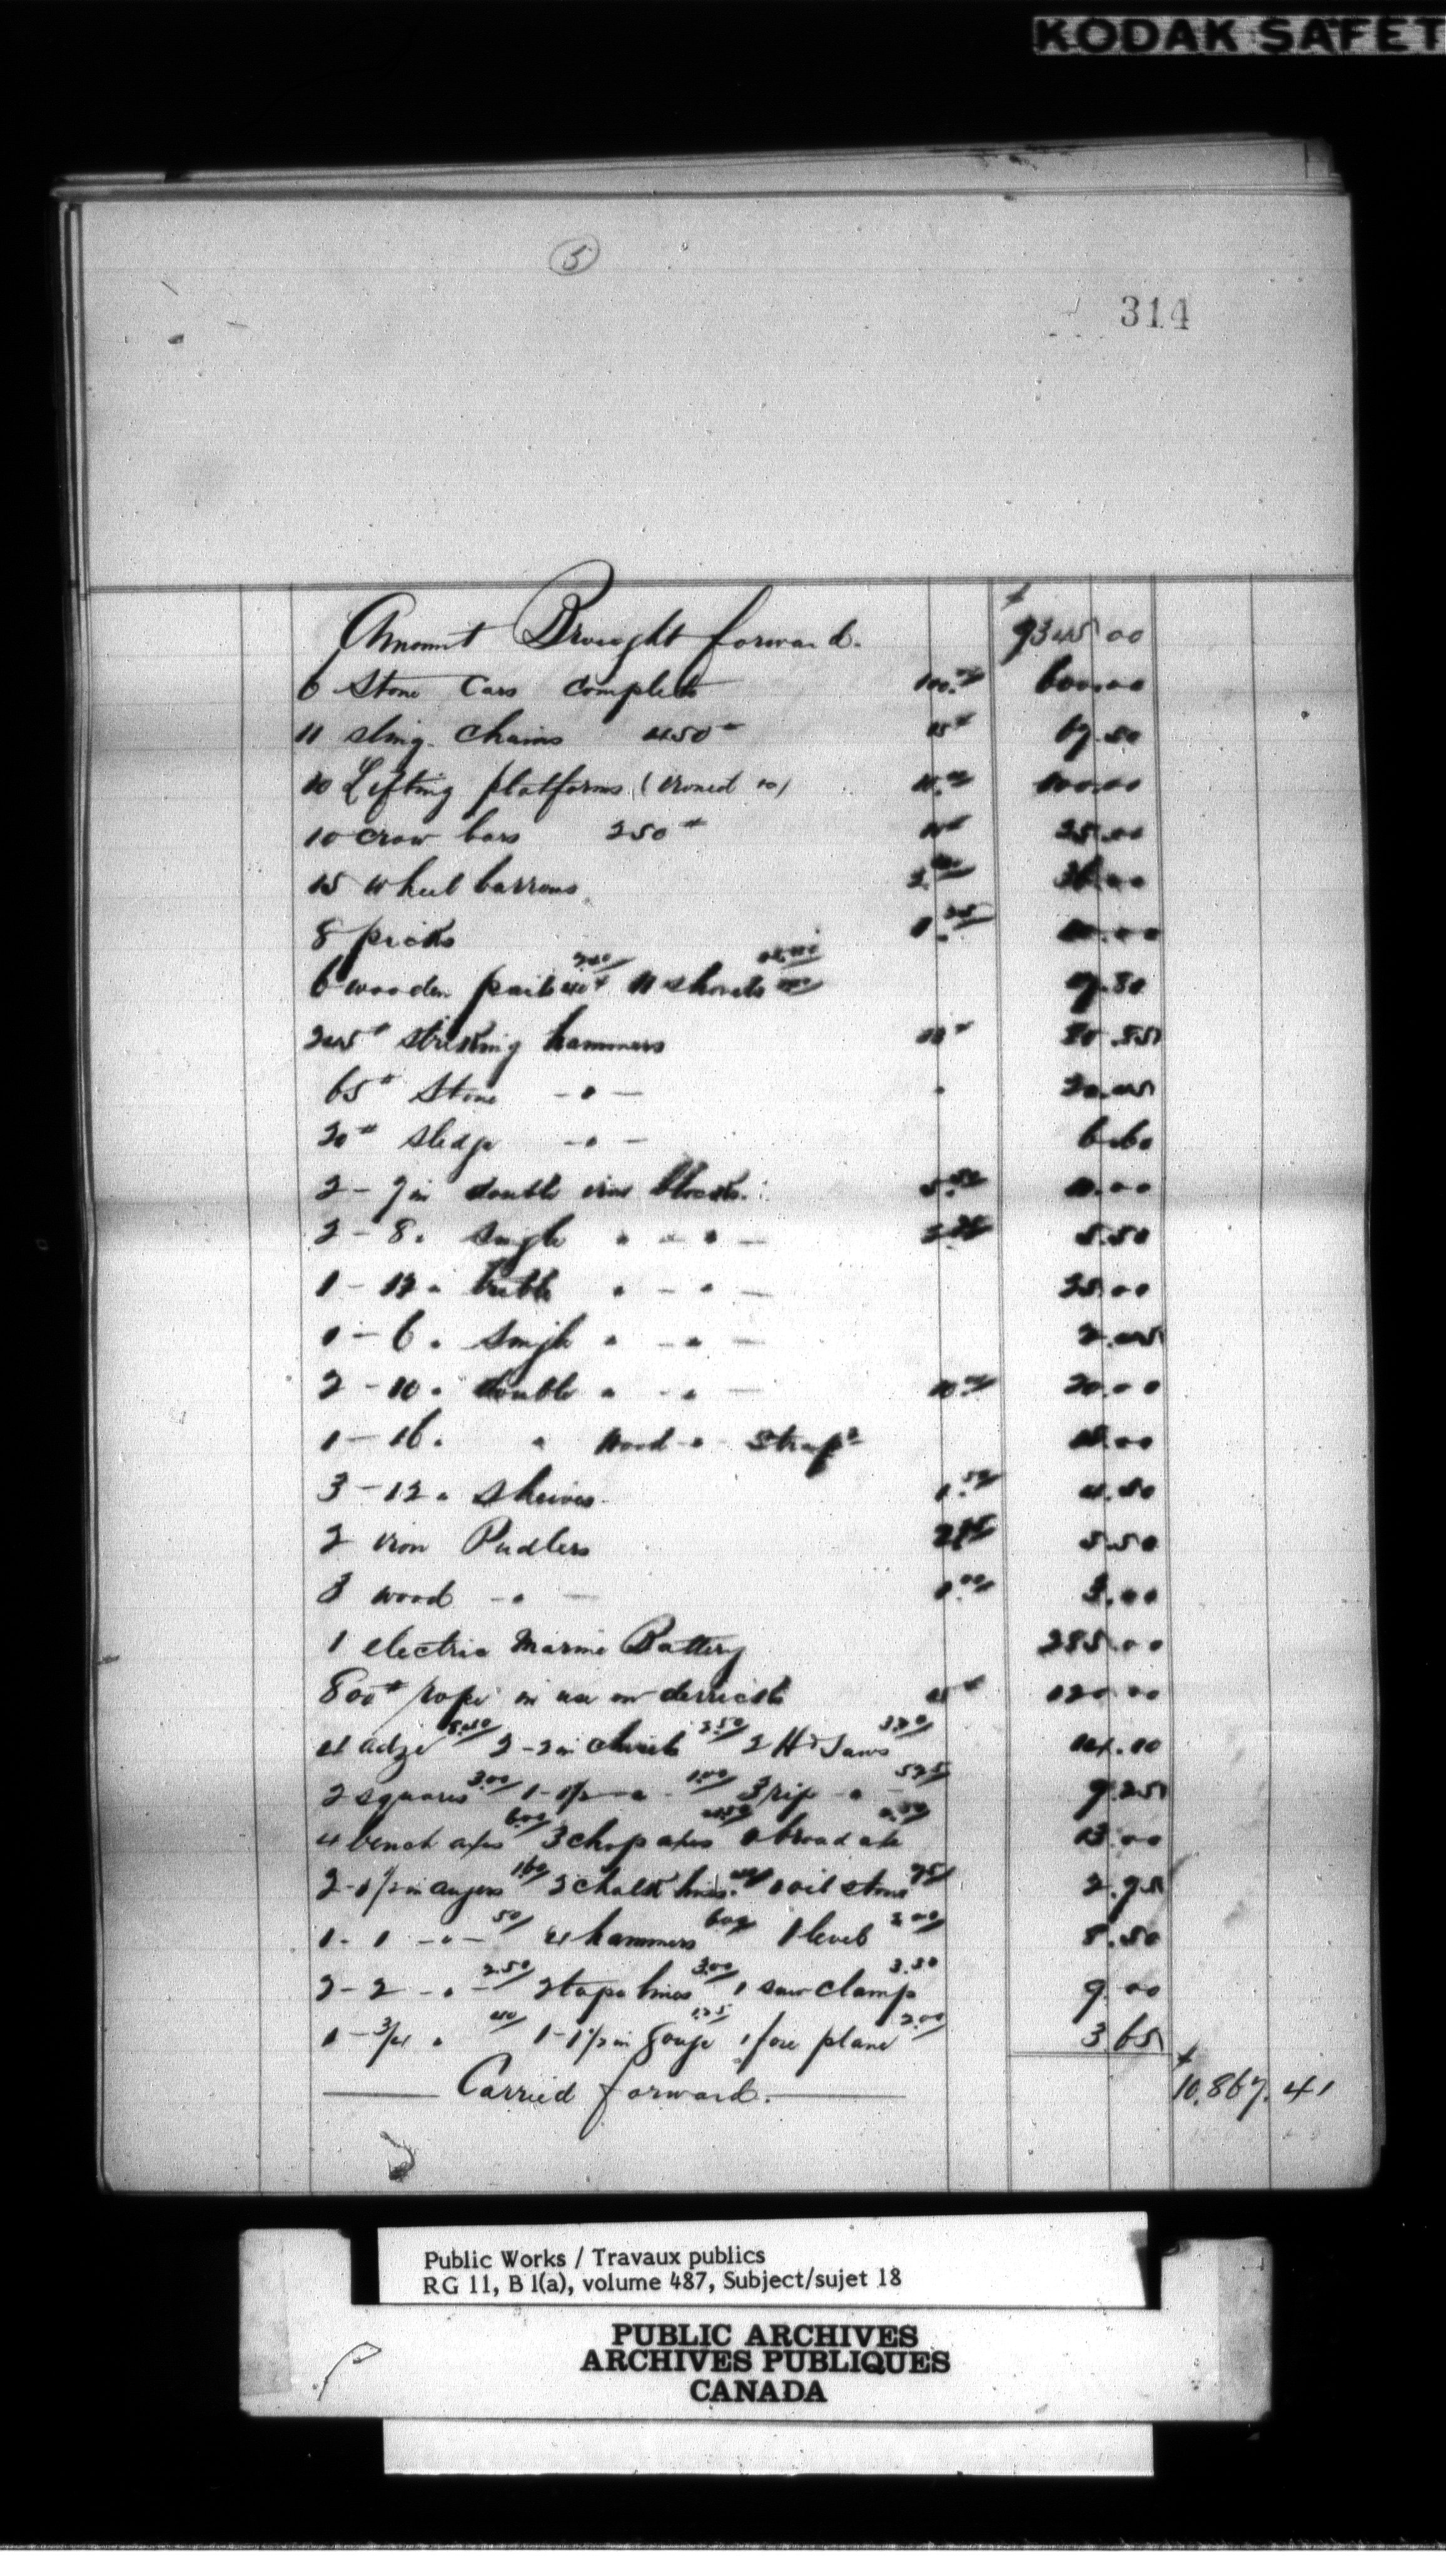 KODAK SAFET
5
314
Amount Brought forward. $ 9345 00
6 Stone Cars complete 100.00 600.00
11 sling chains 450# 15¢ 67.50
10 Lifting platforms (ironed 10.00 100.00
10 crow bars 250# 10¢ 25.00
15 wheel barrows 2. .00
8 picks 1.25 10.00
6 wooden pails 40¢ 2.40 11 shovels 9.80
245# striking hammers 80.85
65# Stone -"- " 
20# sledge -"- 6.60
2 - 7 in double iron Blocks. 5.50 11.00
2 - 8 " single " - " - 2.75 5.50
1 - 12 " treble " - " - 25.00
1 - 6 " single " - " -
2 - 10 " double " - " - 10.00 20.00
1 - 16 " " wood - " strapd .00
3 - 12 " sheives 1.50 4.50
2 iron Pudlers 2.75 5.50
3 wood -"- 1.00 3.00
1 electric Marine Battery 285.00
800# rope in use on derricks 15¢ 120.00
4 adze 2 - 2 in chisels 2.50 2 Hd Saws
2 squares 3.00 1 - 1/2 - " - 1.00 3 rip " - 5.25 9.25
4 bench axes 6.00 3 chop axes 4.50 1 broad axe 2.50 13.00
2 - 1 1/2 in augers 1.60 2 chalk lines 1 oil stone 75 2.75
1 - 1 -"- 50 4 hammers 6.00 1 level 2.00 8.50
2 - 2 -"- 2.50 2 tape lines 3.00 1 saw clamp 3.50 9.00
1 - 3/4 " 40 1 - 1 1/2 in Gouge 1.25 1 fore plane 2.00 3 65
Carried forward. $ 10,867.41
Public Works / Travaux publics
RG 11, B 1(a), volume 487, Subject/sujet 18
PUBLIC ARCHIVES
ARCHIVES PUBLIQUES
CANADA